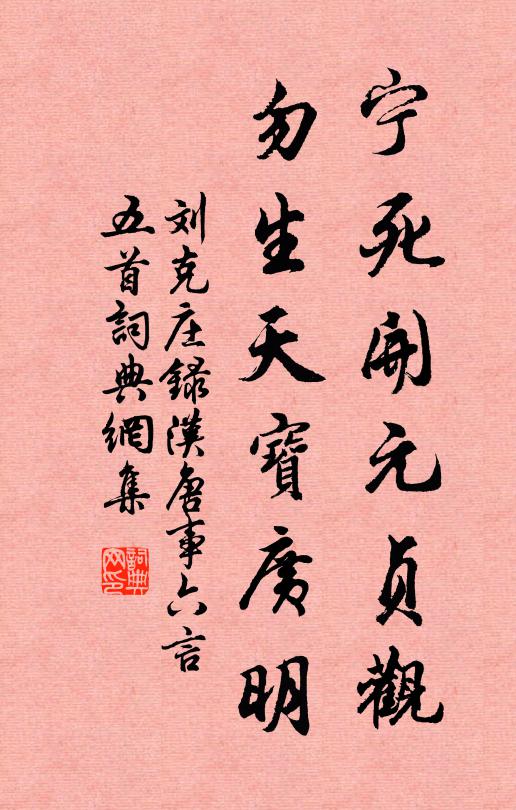 宁死開元貞觀
勿生天寶廣明
刘克庄録漢唐事六言
五首詞典網集
詞典網印